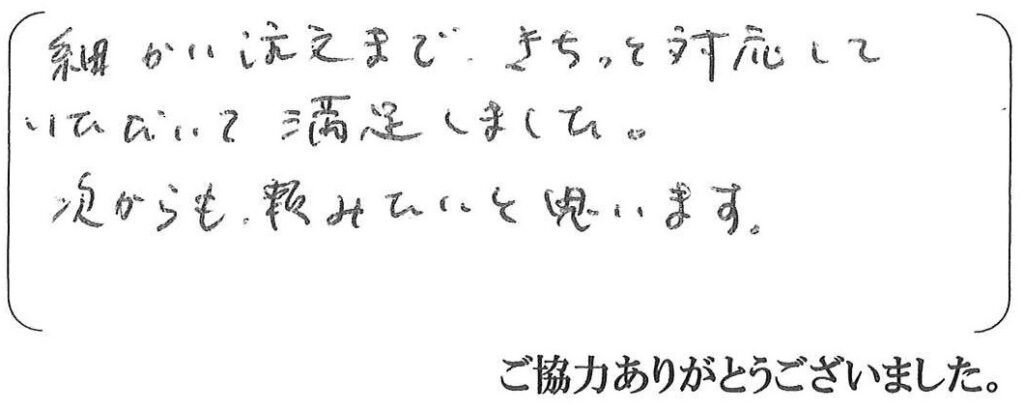 細かい注文まで、きちっと対応して
いただいて満足しました。
次からも、頼みたいと思います。
ご協力ありがとうございました。